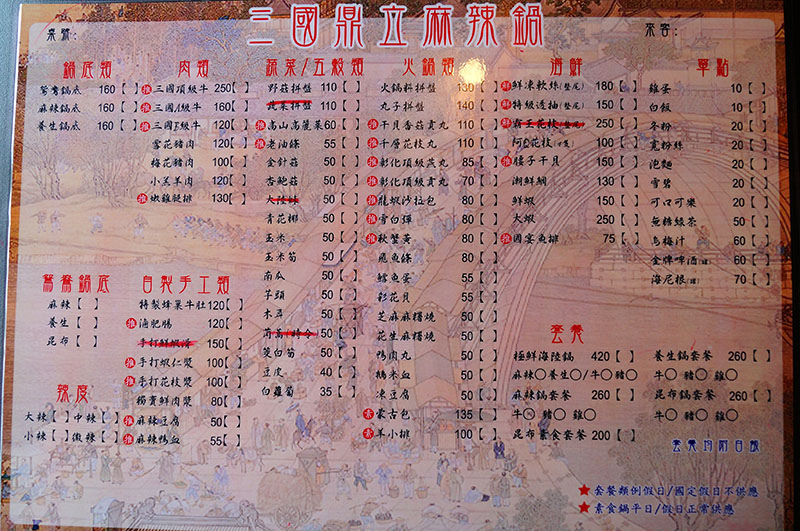 三國鼎立麻辣鍋
桌號:
來客:
鍋底類
鴛鴦鍋底 160【 】
麻辣鍋底 160【 】
養生鍋底 160【 】
肉類
推 三國頂級牛 250【 】
三國1級牛 160【 】
推 三國T級牛 120【 】
雪花豬肉 120【 】
梅花豬肉 100【 】
小羔羊肉 120【 】
推 嫩雞腿排 130【 】
蔬菜/五穀類
野菇拼盤 110【 】
蔬菜拼盤 110【 】
推 高山高麗菜 60【 】
推 老油條 55【 】
金針菇 50【 】
杏鮑菇 50【 】
大陸妹 50【 】
青花椰 50【 】
玉米 50【 】
玉米筍 50【 】
南瓜 50【 】
芋頭 50【 】
木耳 50【 】
茼蒿(時令) 50【 】
筊白筍 50【 】
豆皮 40【 】
白蘿蔔 35【 】
火鍋類
火鍋料拼盤 130【 】
丸子拼盤 140【 】
推 干貝香菇貢丸 110【 】
推 千層花枝丸 110【 】
推 彰化頂級燕丸 85【 】
推 彰化頂級貢丸 70【 】
推 龍蝦沙拉包 80【 】
推 雪白彈 80【 】
推 秋蟹黃 80【 】
飛魚條 80【 】
鱈魚蛋 55【 】
彩花貝 55【 】
芝麻麻糬燒 55【 】
花生麻糬燒 55【 】
鴨肉丸 50【 】
鵝米血 50【 】
凍豆腐 50【 】
素 蒙古包 135【 】
素 羊小排 100【 】
海鮮
鮮 鮮凍軟絲(整尾) 180【 】
鮮 特級透抽(整尾) 150【 】
鮮 霸王花枝(整尾) 250【 】
推 樓子干貝 150【 】
潮鮮鯛 130【 】
鮮蝦 150【 】
大蝦 250【 】
推 國宴魚排 75【 】
單點
雞蛋 10【 】
白飯 10【 】
冬粉 20【 】
寬粉絲 20【 】
泡麵 20【 】
雪碧 20【 】
可口可樂 20【 】
無糖綠茶 50【 】
烏梅汁 60【 】
金牌啤酒(罐) 60【 】
海尼根(罐) 70【 】
鴛鴦鍋底
麻辣【 】
養生【 】
昆布【 】
辣度
大辣【 】中辣【 】
小辣【 】微辣【 】
自製手工類
特製蜂巢牛肚 120【 】
推 滷肥腸 120【 】
手打鮮蝦滑 150【 】
推 手打蝦仁漿 100【 】
推 手打花枝漿 100【 】
獨賣鮮肉漿 80【 】
推 麻辣豆腐 50【 】
推 麻辣鴨血 55【 】
套餐
極鮮海陸鍋 420【 】
麻辣○養生○/牛○豬○
麻辣鍋套餐 260【 】
牛○ 豬○ 雞○
昆布素食套餐 200【 】
養生鍋套餐 260【 】
牛○ 豬○ 雞○
昆布鍋套餐 260【 】
牛○ 豬○ 雞○
套餐均附白飯
★套餐類例假日/國定假日不供應
★素食鍋平日/假日正常供應